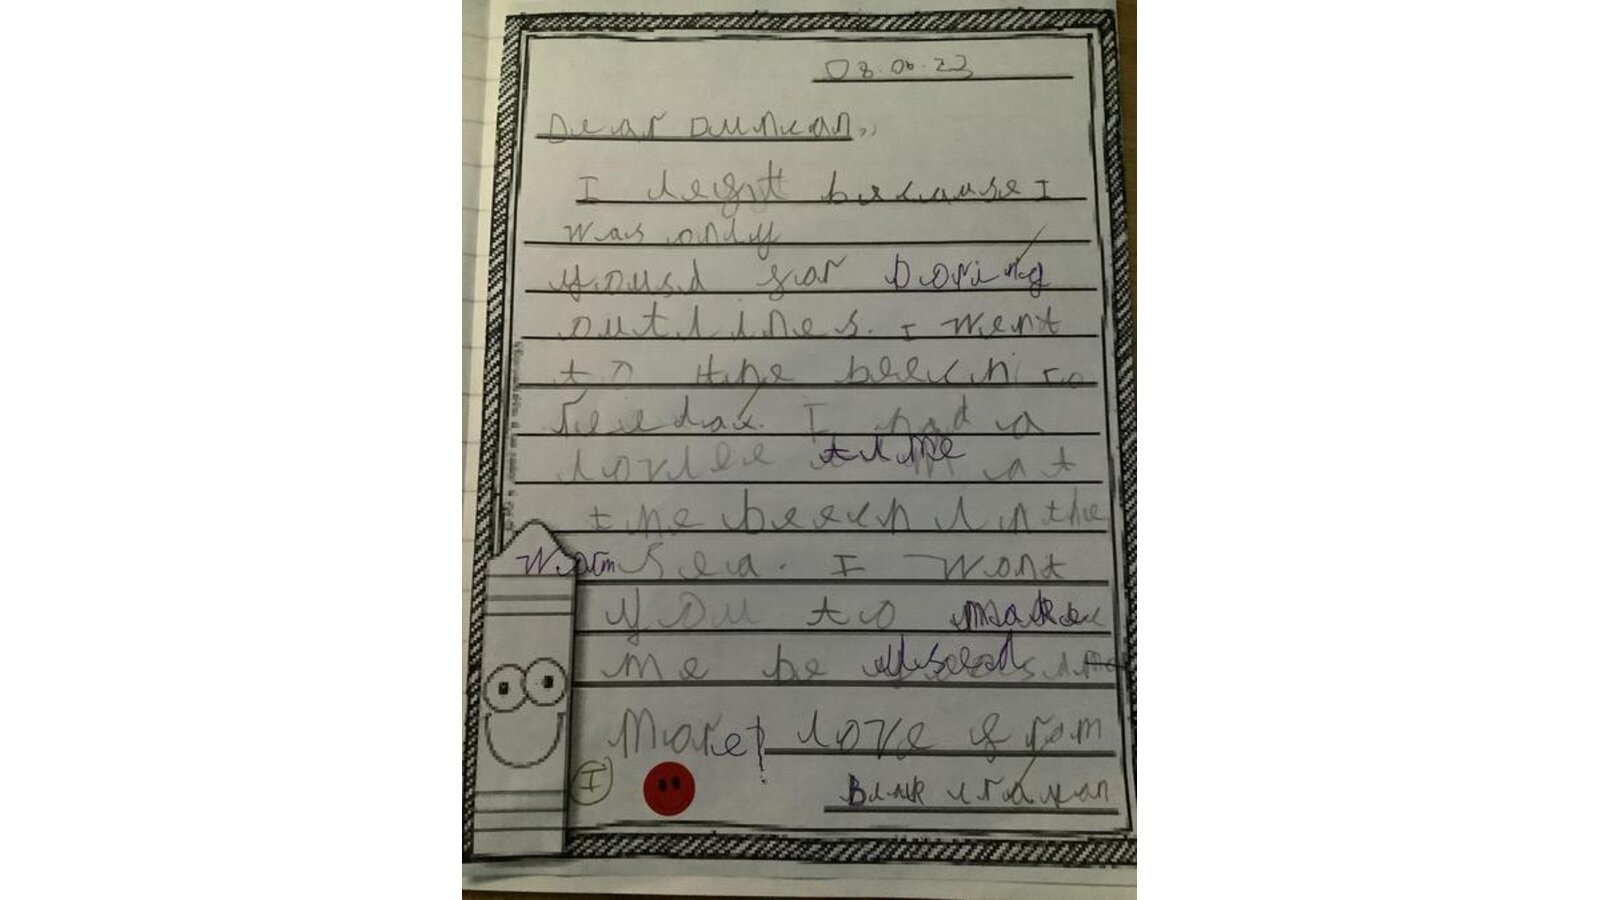 08.06.23
Dear Duncan,,
I left because I
was only
yousd for boring
outlines. I went
to the beech to
reelax. I had a
lovlee time at
the beech in the
warm sea. I wont
you to make
me be used
more! love from
I